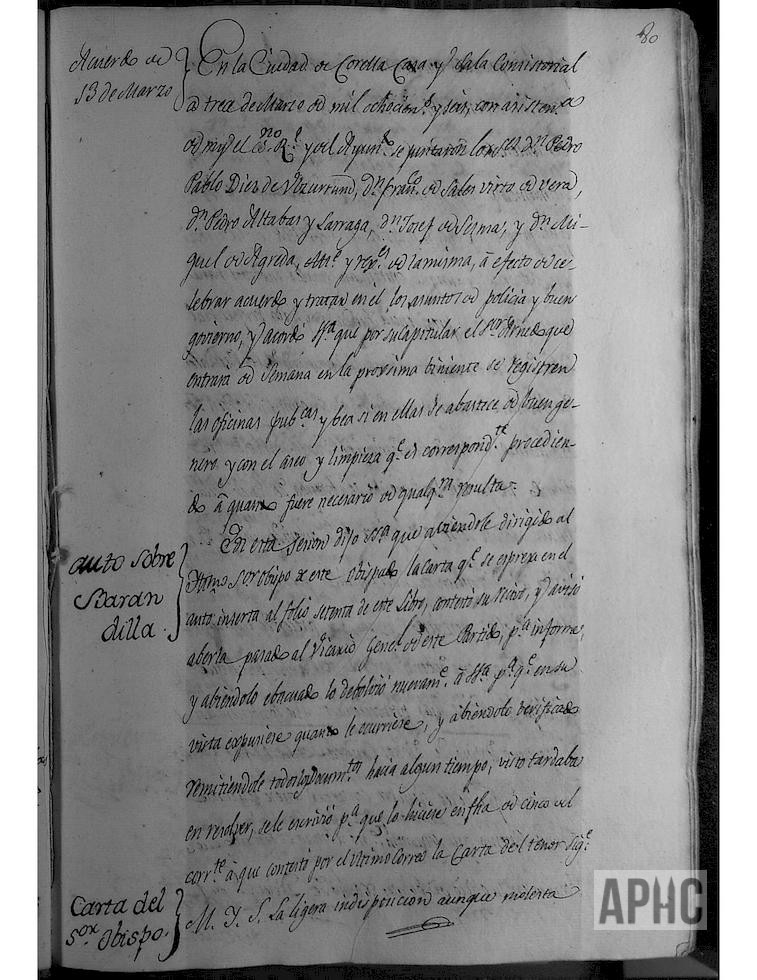 80
Acuerdo de
13 de Marzo
En la Ciudad de Corella Casa y Sala Consistorial
a trece de Marzo de mil ochocien.s y seis, con asisten.a
de my el es.no R.l y del Ayun.to se juntaron los S.res D.n Pedro
Pablo Diez de Ulzurrun, D.n Fran.co de Sales Virto de Vera,
D.n Pedro Altabas y Larraga, D.n Josef de Sesma, y D.n Mi-
guel de Agreda, Alc.e y reg.es de la misma, a efecto de ce-
lebrar acuerdo y tratar en el los asuntos de policia y buen
govierno, y acordó SSa que por su capitular el S.or Arnedo que
entrará de semana en la proxima biniente se registren
las oficinas pub.cas y bea si en ellas se abastece de buen ge-
nero y con el aseo y limpieza q.e es correspond.te procedien-
do á quanto fuere necesario de qualq.ra resulta.
En esta sesion dijo SSa que abiendole dirigido al
Iltmo Sor Obispo de este Obispado la carta q.e se expresa en el
auto sobre
Baran
dilla.
auto inserta al folio setenta de este libro, contestó su recivo, y avisó
aberla pasado al Vicario Gene.l de este Partido, p.a informe,
y abiendolo ebacuado lo debolvió nuevam.e a SSa p.a q.e en su
vista expusiese quanto le ocurriese, y abiendole verificado
remitiendole todos los docum.tos hacia algun tiempo, visto tardaba
en resolver, se le escrivió p.a que lo hiciese en fha de cinco del
corr.te á que contestó por el ultimo Correo la Carta del tenor sig.e
Carta del
S.or Obispo.
M. Y. S. La ligera indisposicion aunque molesta
APHC